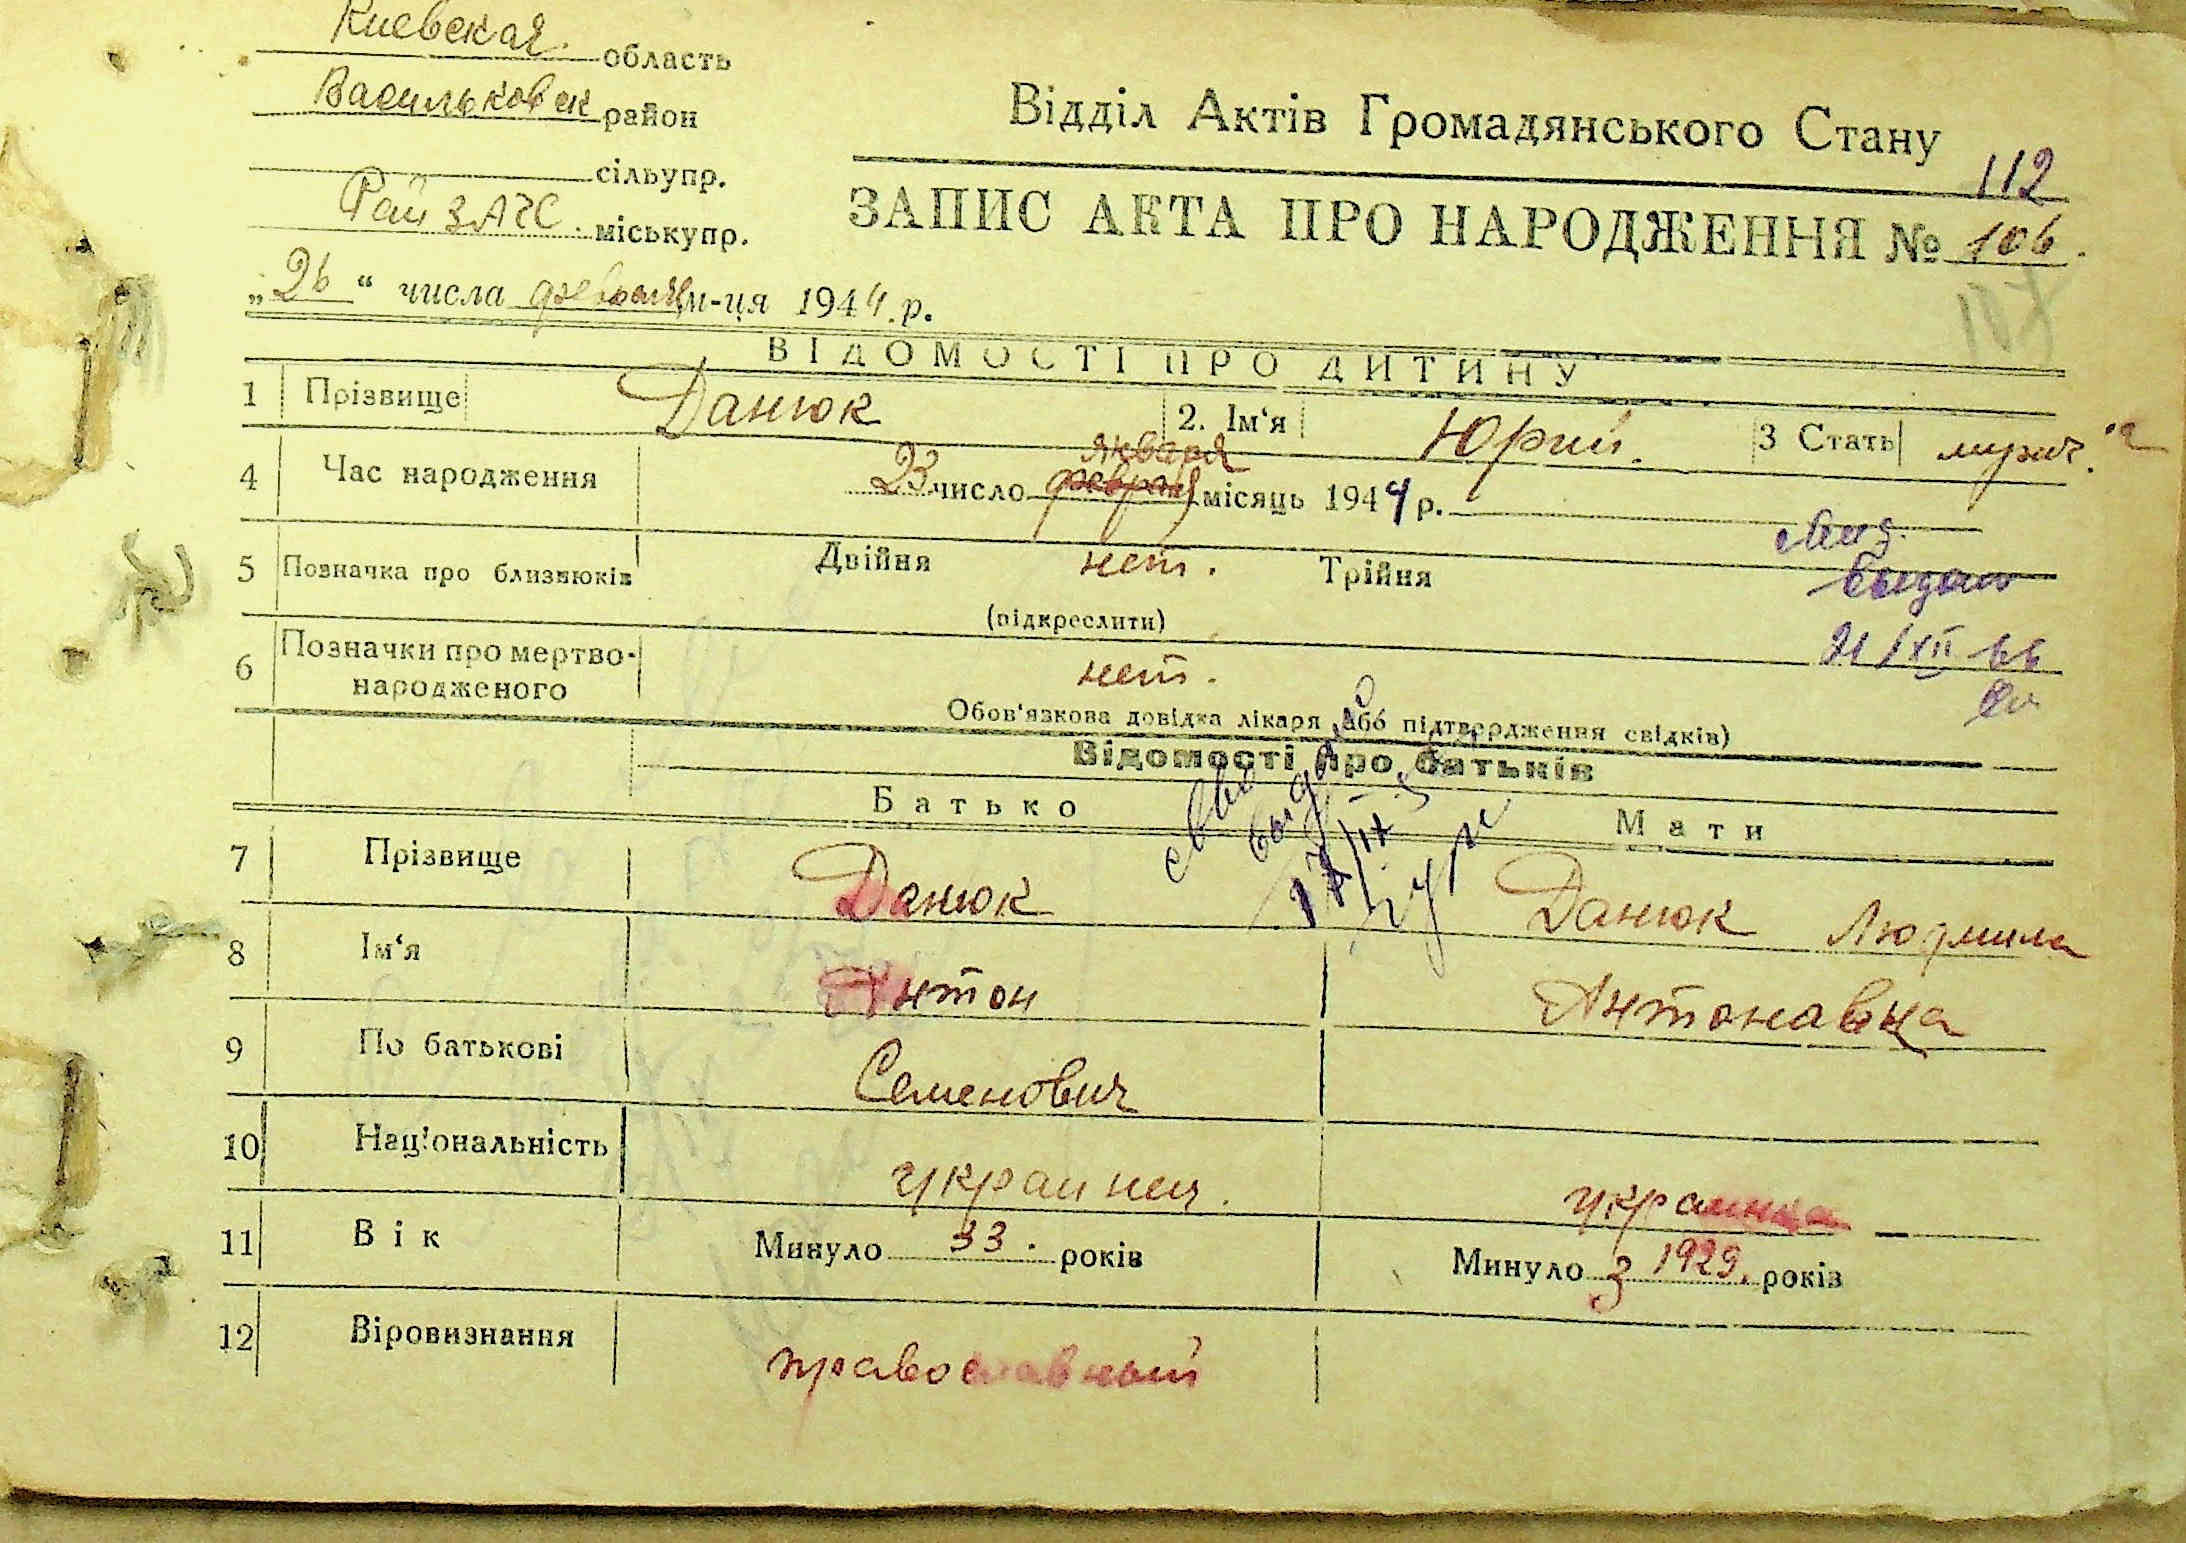 Киевская область
Васильковск район
сільупр.
Рай ЗАГС. міськупр.
„26“ числа февраля м-ця 1944 р.
Відділ Актів Громадянського Стану
112
ЗАПИС АКТА ПРО НАРОДЖЕННЯ № 106.
107
ВІДОМОСТІ ПРО ДИТИНУ
1 Прізвище Данюк 2. Ім‘я Юрий. 3 Стать мужск.
4 Час народження 23 число февраля января місяць 1944 р.
5 Позначка про близнюків Двійня нет. Трійня
(підкреслити)
выдано
21/XII 66
6 Позначки про мертво-
народженого нет.
Обов‘язкова довідка лікаря або підтвердження свідків)
Відомості про батьків
Батько Мати
выдано
7 Прізвище Данюк Данюк Людмила
8 Ім‘я Антон Антонавна
9 По батькові Семенович
10 Національність украинец. украинка
11 Вік Минуло 33. років Минуло з 1929. років
12 Віровизнання православный